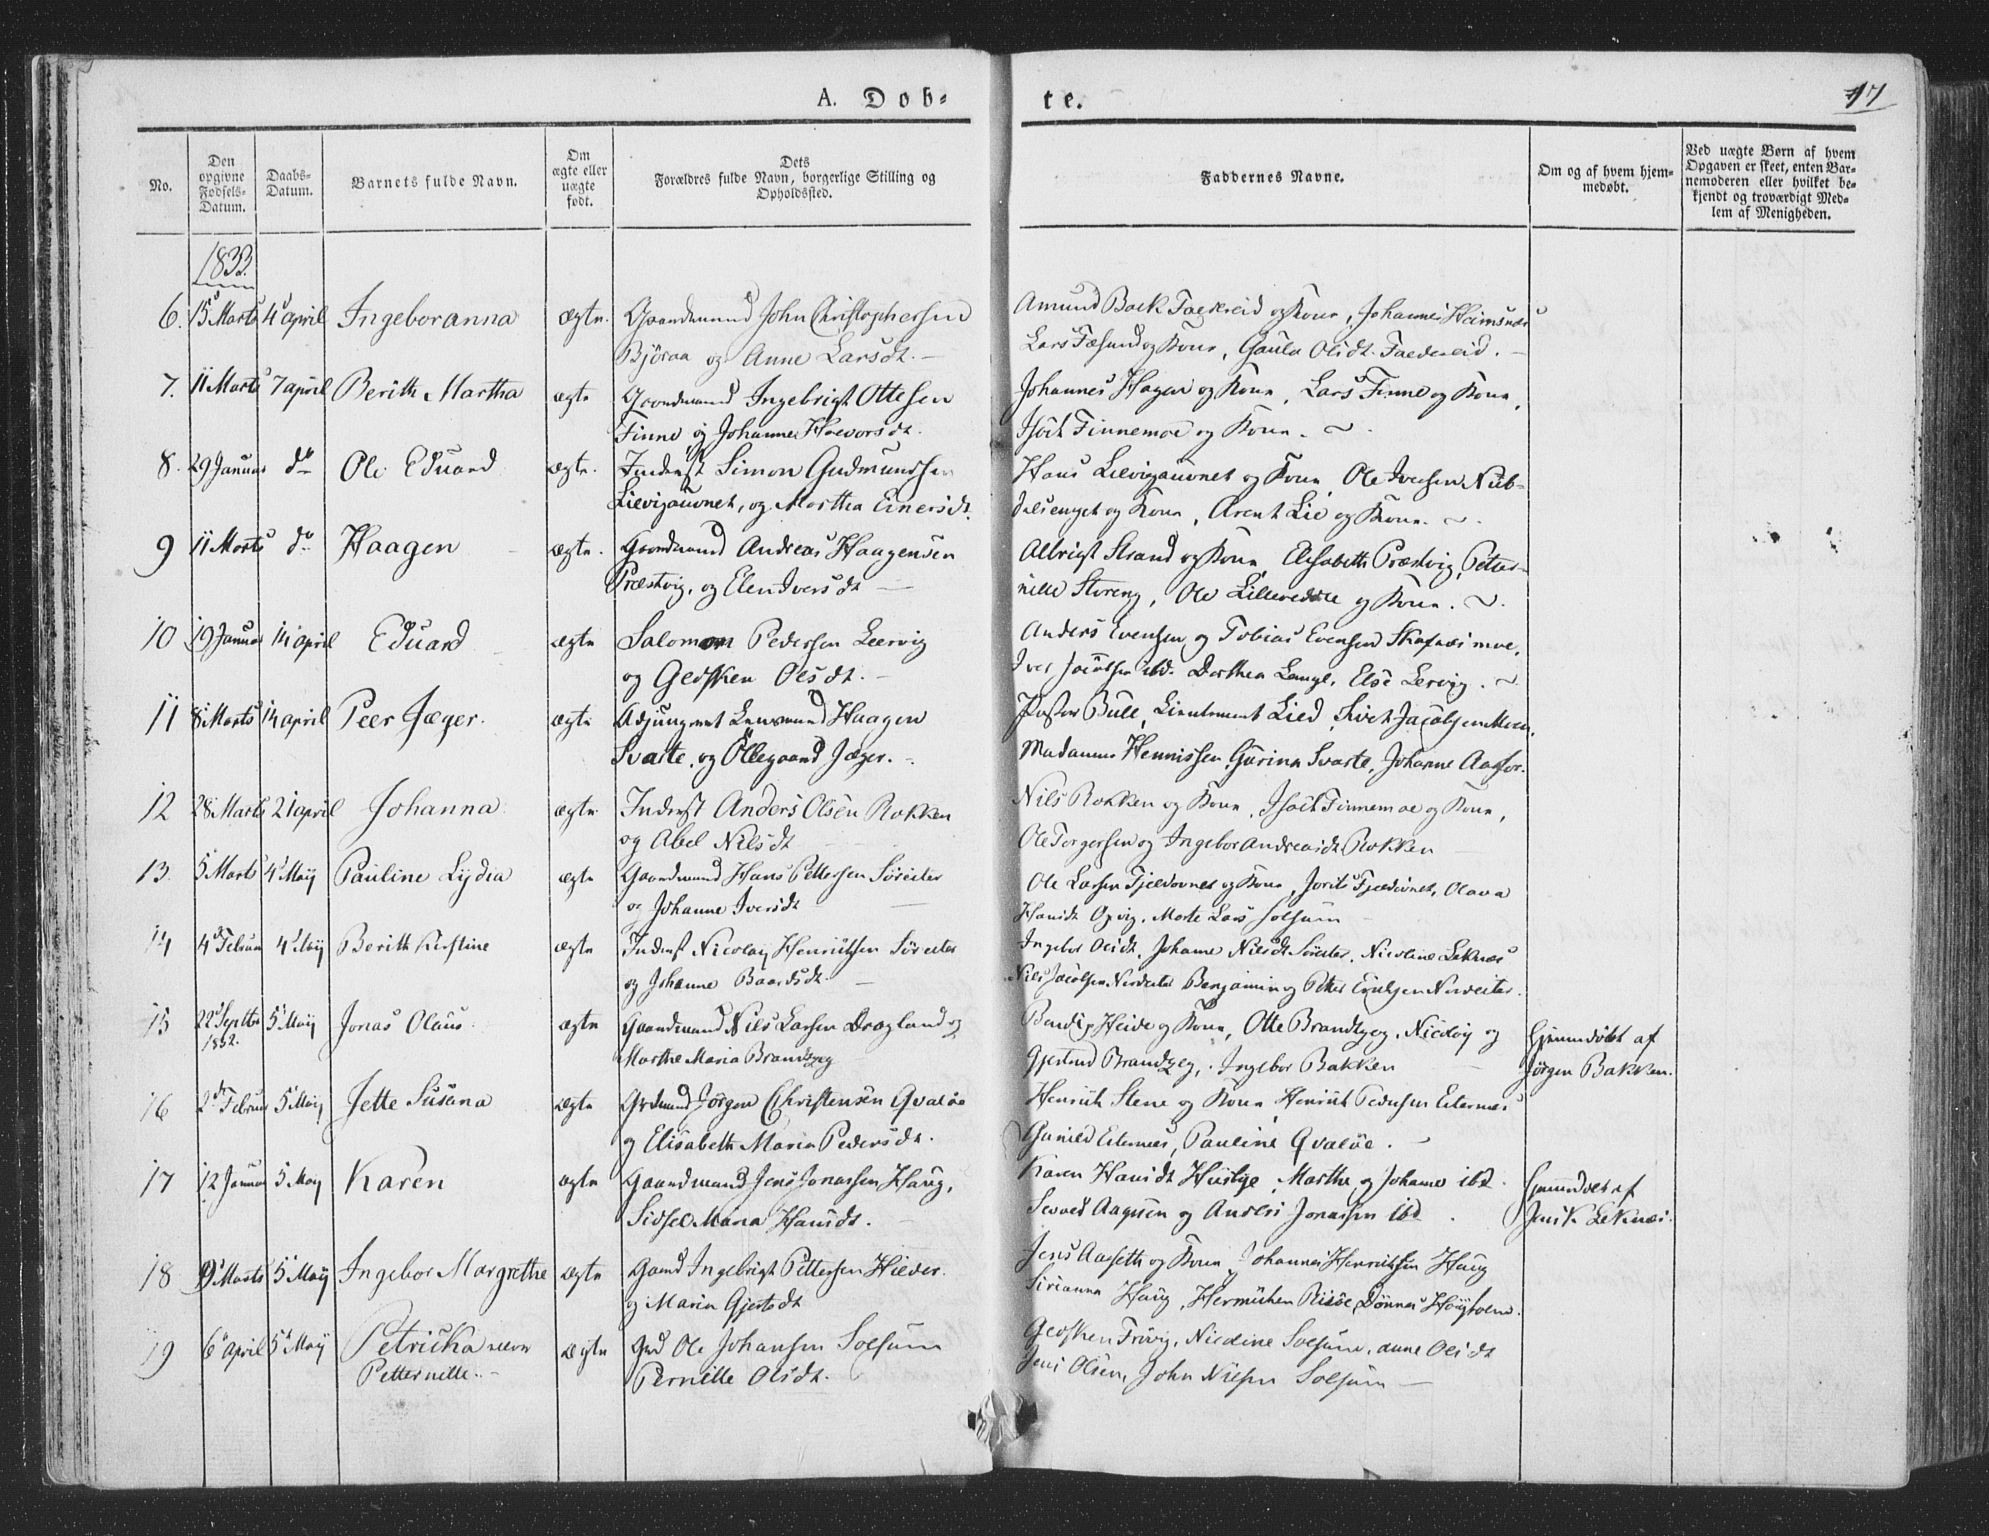 A. Dob-
te.
17
No.
Den opgivne Fødsels-Datum.
Daabs-Datum.
Barnets fulde Navn.
Om ægte eller uægte født.
Dets Forældres fulde Navn, borgerlige Stilling og Opholdssted.
Faddernes Navne.
Om og af hvem hjem-medøbt.
Ved uægte Børn af hvem Opgaven er skeet, enten Bar-nemoderen eller hvilket be-kjendt og troværdigt Med-lem af Menigheden.
1833.
6. 15 Marts 4 april Ingeboranna ægte. Gaardmand John Christophersen
Björaa og Anne Larsdt.
Amund Bock Faekreid og Kone, Johannes Heimsnæs
Lars og Kone, Olsdt.
7. 11 Marts 7 april Berith Martha ægte Gaardmand Ingebrigt Ottesen
Finne og Johanna Haevorsdt.
Johannes Hagen og Kone, Lars Finne og Kone,
Finnemoe og Kone.
8. 29 Januar do Ole Eduard ægte. Inderst Simon Gudmundsen
Lievigauvnet, og Martha Einersdt.
Hans Lilvigauvnet og Kone, Ole Iversen
og Kone, Arent Lie og Kone.
9 11 Marts do Haagen ægte. Gaardmand Andreas Haagensen
Præstvig, og Elen Iversdt
Albrigt Strand og Kone, Elisabeth Præstvig, Petter-
nille Storeng, Ole Lilleredde og Kone.
10 19 Januar 14 april Eduard ægte Salomon Pedersen Leervig
og Gedsken Olsdt.
Anders Evensen og Tobias Evensen
Iver Jacobsen ibd. Dorthea Lange, Else Lervig.
11 8 Marts 14 april Peer Jæger. ægte Adjungeret Lensmand Haagen
Svarte, og Öllegaard Jæger.
Pastor Bull, Lieutenant Lied, Sivert Jacobsen Moen,
Madamme Hennissen, Gurina Svarte, Johanne
12 28 Marts 21 april Johanna ægte Inderst Anders Olsen Rokken
og Abel Nilsdt
Nils Rokken og Kone, Finnemoe og Kone,
Ole Torgersen og Ingebor Andreasdt Rokken
13. 5 Marts 4 Maij Pauline Lydia ægte Gaardmand Hans Pettersen Söreiter
og Johanne Iversdt
Ole Larsen Fjeldavnet og Kone, Olava
Hansdt Opvig, Lars Solsum
14 4 Februar 4 Maij Berith Kirstine ægte Inderst Nicolay Henriksen Söreiter
og Johanne Baardsdt.
Ingebor Olsdt, Johanne Nilsdt Söreiter, Nicoline Leknæs
Nils Jacobsen Nordeiter Benjamin og Petter Nordeiter.
15 22 Septbr 1832. 5 Maij Jonas Olaus. ægte Gaardmand Nils Larsen Dragland og
Marthe Maria Brandtzeg
Heide og Kone, Otte Brandtzeg, Nicolay og
Gjertrud Brandtzeg, Ingebor Bakken
Hjemmedöbt af
Jörgen Bakken.
16 2 Februar 5 Maij Jette Susana ægte Grdmand Jörgen Christensen Qvalöe
og Elisabeth Maria Pedersdt.
Henrik Stene og Kone, Henrik Pedersen Eiternæs
Gunild Eiternæs, Pauline Qvalöe.
17 12 Januar 5 Maij Karen ægte Gaardmand Jens Jonassen Haug,
Sidsel Maria Hansdt.
Karen Hansdt, Marthe og Johanne ibd.
Aagesen og Anders Jonassen ibd.
Hjemmedöbt af
Leknæs.
18 9 Marts 5 Maij Ingebor Margrethe ægte Gamd Ingebrigt Pettersen Hilder.
og Maria Gjertsdt
Jens Aaseth og Kone, Johannes Henriksen Haug
Sirianna Haug, Risöe, Dönnes
19 6 april 5 Maij Petricka ægte Grd Ole Johansen Solsum
Petternelle. Pernille Olsdt.
Gedsken Frövig, Nicoline Solsum, Anne Olsdt
Jens Olsen, John Nilsen Solsum